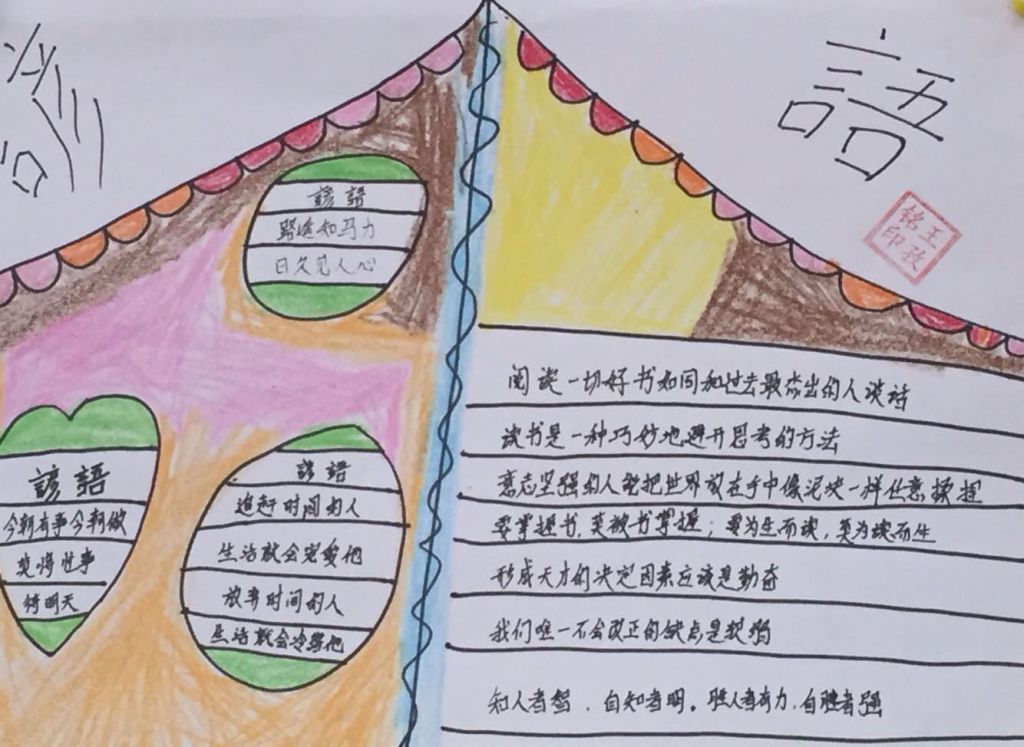 語
王玫
铭印
諺語
路遥知马力
日久见人心
諺語
今朝有事今朝做
莫将事
待明天
諺語
追赶时间的人
生活就会宠爱他
放弃时间的人
生活就会冷落他
阅读一切好书如同和过去最杰出的人谈话
读书是一种巧妙地避开思考的方法
意志坚强的人能把世界放在手中像泥块一样任意揉捏
要掌握书,莫被书掌握;要为生而读,莫为读而生
形成天才的决定因素应该是勤奋
我们唯一不会改正的缺点是软弱
知人者智,自知者明。胜人者有力,自胜者强